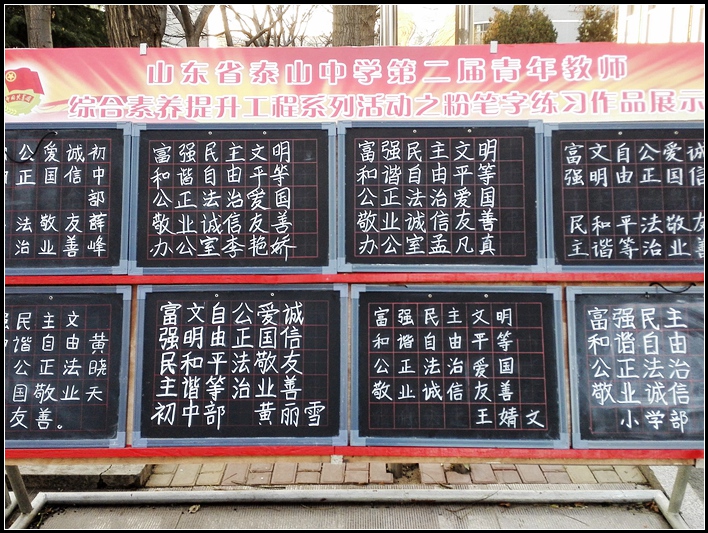 山东省泰山中学第二届青年教师
综合素养提升工程系列活动之粉笔字练习作品展示
公爱诚初
正国信中
部
法敬友薛
治业善峰
富强民主文明
和谐自由平等
公正法治爱国
敬业诚信友善
办公室李艳娇
富强民主文明
和谐自由平等
公正法治爱国
敬业诚信友善
办公室孟凡真
富文自公爱诚
强明由正国信
民和平法敬友
主谐等治业善
民主文
谐自由黄
公正法晓
国敬业天
友善。
富文自公爱诚
强明由正国信
民和平法敬友
主谐等治业善
初中部 黄丽雪
富强民主文明
和谐自由平等
公正法治爱国
敬业诚信友善
王婧文
富强民主
和谐自由
公正法治
敬业诚信
小学部